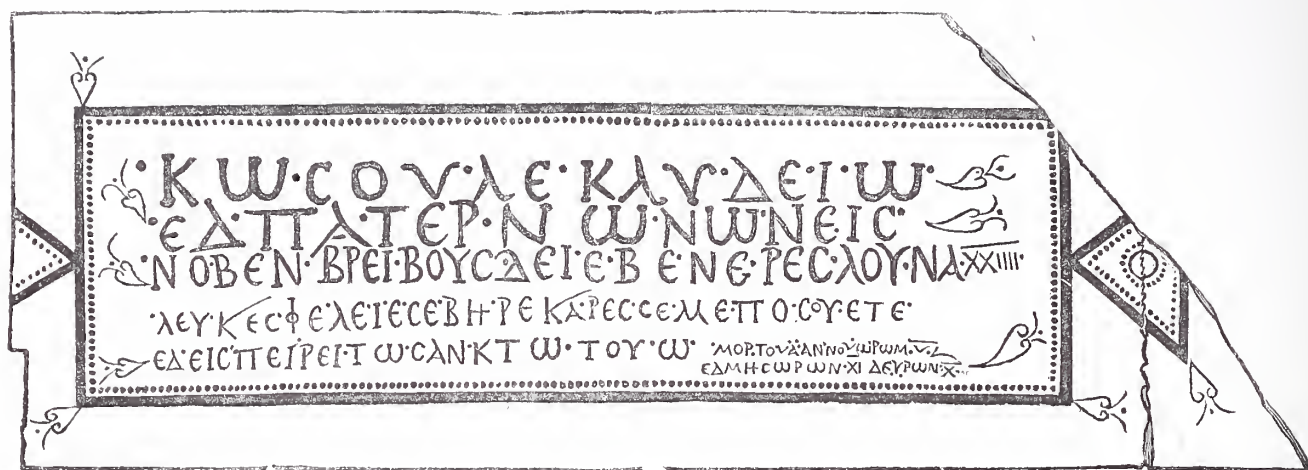 ·ΚѠ·ϹΟΥ·ΛΕ·ΚΛΥ·ΔΕ·Ι·Ѡ·
·ΕΔ·ΠΑ·ΤΕΡ·Ν Ѡ·ΝѠ·ΝΕΙϹ·
·ΝΟΒΕΝ·ΒΡΕΙ·ΒΟΥϹ·ΔΕΙΕ·Β ΕΝΕ·ΡΕϹ·ΛΟΥ·ΝΑ·XXIIII·
·ΛΕΥ·ΚΕϹ ΦΕ·ΛΕΙΕ ϹΕΒΗ·ΡΕ ΚΑ·ΡΕϹϹΕ·ΜΕ·ΠΟ·ϹΟΥ·ΕΤΕ·
ΕΔ·ΕΙϹ·ΠΕΙΡΕΙ·ΤѠ·ϹΑΝ·ΚΤѠ·ΤΟΥ·Ѡ·
·ΜΟΡ·ΤΟΥΑ·ΑΝΝΟΥѠΡѠΜ·V·Λ
ΕΔΜΗϹѠΡѠΝ·XI ΔΕΥΡѠΝ·X·